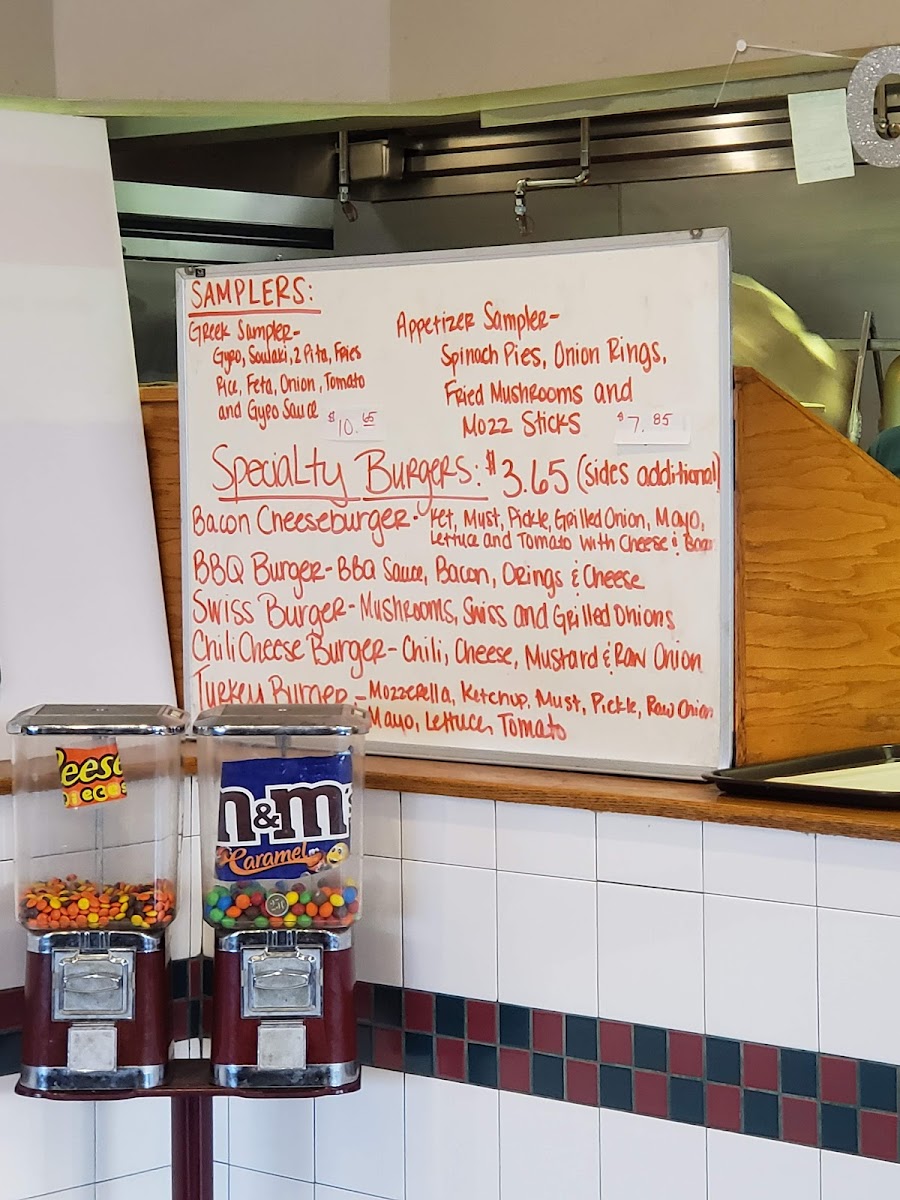 SAMPLERS:
Greek Sampler-
Gyro, Soulaki, 2 Pita, Fries
Rice, Feta, Onion, Tomato
and Gyro Sauce $10.65
Appetizer Sampler-
Spinach Pies, Onion Rings,
Fried Mushrooms and
Mozz Sticks $7.85
Specialty Burgers: $3.65 (sides additional)
Bacon Cheeseburger- Ket, Must, Pickle, Grilled Onion, Mayo,
Lettuce and Tomato with Cheese &
BBQ Burger- BBQ Sauce, Bacon, Orings & Cheese
Swiss Burger- Mushrooms, Swiss and Grilled Onions
Chili Cheese Burger- Chili, Cheese, Mustard & Raw Onion
Turkey Burger- Mozzerella, Ketchup, Must, Pickle, Raw Onion
Mayo, Lettuce, Tomato
Reese
PIECES
m&m's
Caramel